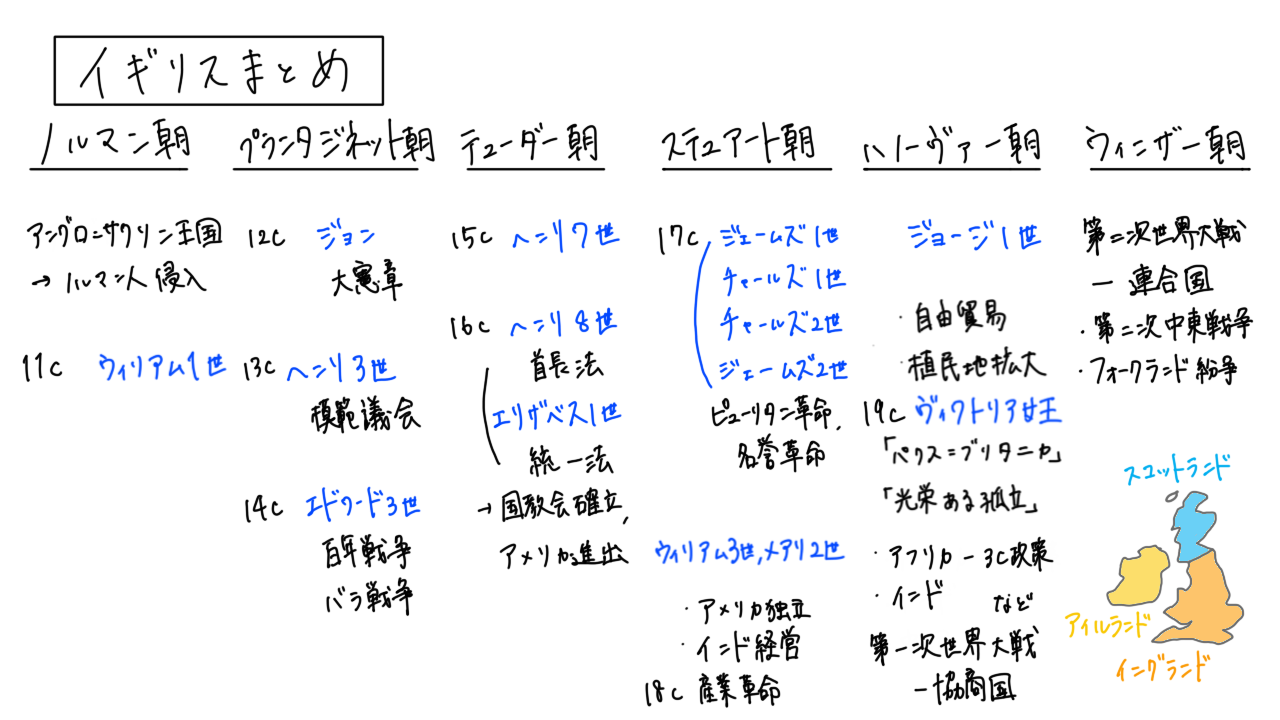 イギリスまとめ
ノルマン朝
アングロ=サクソン王国
→ノルマン人侵入
11c ウィリアム1世
プランタジネット朝
12c ジョン
大憲章
13c ヘンリ3世
模範議会
14c エドワード3世
百年戦争
バラ戦争
テューダー朝
15c ヘンリ7世
16c ヘンリ8世
首長法
エリザベス1世
統一法
→国教会確立,
アメリカ進出
ステュアート朝
17c ジェームズ1世
チャールズ1世
チャールズ2世
ジェームズ2世
ピューリタン革命,
名誉革命
ウィリアム3世,メアリ2世
・アメリカ独立
・インド経営
18c 産業革命
ハノーヴァー朝
ジョージ1世
・自由貿易
・植民地拡大
19c ヴィクトリア女王
「パクス=ブリタニカ」
「光栄ある孤立」
・アフリカ-3C政策
・インド など
第一次世界大戦
-協商国
ウィンザー朝
第二次世界大戦
-連合国
・第二次中東戦争
・フォークランド紛争
スコットランド
アイルランド
イングランド